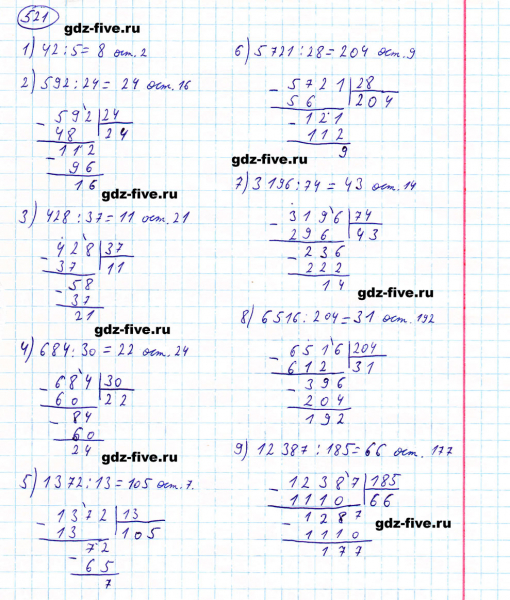 521
gdz-five.ru
1) 42 : 5 = 8 ост. 2
2) 592 : 24 = 24 ост. 16
- 592 | 24
48 | 24
- 112
96
16
gdz-five.ru
3) 428 : 37 = 11 ост. 21
- 428 | 37
37 | 11
- 58
37
21
gdz-five.ru
4) 684 : 30 = 22 ост. 24
- 684 | 30
60 | 22
- 84
60
24
gdz-five.ru
5) 1372 : 13 = 105 ост. 7.
- 1372 | 13
13 | 105
- 72
65
7
6) 5721 : 28 = 204 ост. 9
- 5721 | 28
56 | 204
- 121
112
9
gdz-five.ru
7) 3196 : 74 = 43 ост. 14
- 3196 | 74
296 | 43
- 236
222
14
gdz-five.ru
8) 6516 : 204 = 31 ост. 192
- 6516 | 204
612 | 31
- 396
204
192
9) 12387 : 185 = 66 ост. 177
- 12387 | 185
1110 | 66
- 1287
1110
177
gdz-five.ru